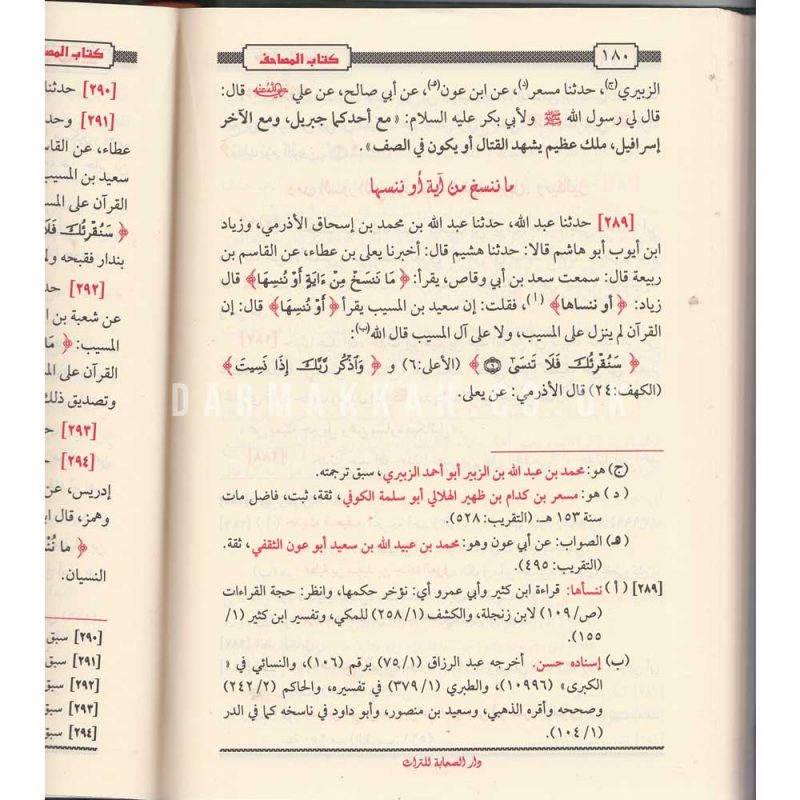 ١٨٠
كتاب المصاحف
الزبيري(ج)، حدثنا مسعر(د)، عن ابن عون(هـ)، عن أبي صالح، عن علي رضي الله عنه قال:
قال لي رسول الله ﷺ ولأبي بكر عليه السلام: «مع أحدكما جبريل، ومع الآخر
إسرافيل، ملك عظيم يشهد القتال أو يكون في الصف».
ما ننسخ من آية أو ننسها
[٢٨٩] حدثنا عبد الله، حدثنا عبد الله بن محمد بن إسحاق الأذرمي، وزياد
ابن أيوب أبو هاشم قالا: حدثنا هشيم قال: أخبرنا يعلى بن عطاء، عن القاسم بن
ربيعة قال: سمعت سعد بن أبي وقاص، يقرأ: ﴿مَا نَنسَخْ مِنْ ءَايَةٍ أَوْ نُنسِهَا﴾ قال
زياد: ﴿أو ننساها﴾ (أ)، فقلت: إن سعيد بن المسيب يقرأ ﴿أَوْ نُنسِهَا﴾ قال: إن
القرآن لم ينزل على المسيب، ولا على آل المسيب قال الله(ب):
﴿سَنُقْرِئُكَ فَلَا تَنسَىٰ ۝٦﴾ (الأعلى:٦) و ﴿وَاذْكُر رَّبَّكَ إِذَا نَسِيتَ﴾
(الكهف:٢٤) قال الأذرمي: عن يعلى.
DARMAKKAH.CO.UK
(ج) هو: محمد بن عبد الله بن الزبير أبو أحمد الزبيري، سبق ترجمته.
(د) هو: مسعر بن كدام بن ظهير الهلالي أبو سلمة الكوفي، ثقة، ثبت، فاضل مات
سنة ١٥٣ هـ. (التقريب: ٥٢٨).
(هـ) الصواب: عن أبي عون وهو: محمد بن عبيد الله بن سعيد أبو عون الثقفي، ثقة.
(التقريب: ٤٩٥).
[٢٨٩] (أ) ننسأها: قراءة ابن كثير وأبي عمرو أي: نؤخر حكمها، وانظر: حجة القراءات
(ص/١٠٩) لابن زنجلة، والكشف (١/ ٢٥٨) للمكي، وتفسير ابن كثير (١/
١٥٥).
(ب) إسناده حسن. أخرجه عبد الرزاق (١/ ٧٥) برقم (١٠٦)، والنسائي في «
الكبرى» (١٠٩٩٦)، والطبري (١/ ٣٧٩) في تفسيره، والحاكم (٢/ ٢٤٢)
وصححه وأقره الذهبي، وسعيد بن منصور، وأبو داود في ناسخه كما في الدر
(١/ ١٠٤).
دار الصحابة للتراث
كتاب المصا
[٢٩٠] حدثنا
[٢٩١] وحد
عطاء، عن القاس
سعيد بن المسيب
القرآن على المس
﴿سَنُقْرِئُكَ فَلَا
بندار فقبحه ولم
[٢٩٢] حد
عن شعبة بن ا
المسيب: ﴿مَا
القرآن على الم
وتصديق ذلك
[٢٩٣] ح
[٢٩٤] ح
إدريس، عن
وهمز، قال اب
﴿مَا نَنْ
النسيان.
[٢٩٠] سبق
[٢٩١] سبق
[٢٩٢] سبق
[٢٩٣] سبق
[٢٩٤] سبق